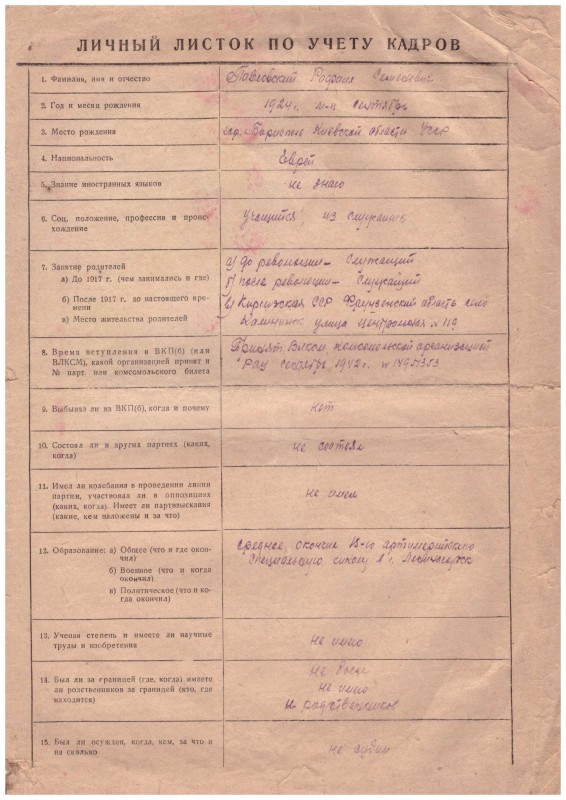 ЛИЧНЫЙ ЛИСТОК ПО УЧЕТУ КАДРОВ
1. Фамилия, имя и отчество
Павловский Рафаил
2. Год и месяц рождения
1924 г. м-ц сентябрь
3. Место рождения
Борисполь Киевской области УССР
4. Национальность
Еврей
5. Знание иностранных языков
не знаю
6. Соц. положение, профессия и проис-
хождение
Учащийся, из служащих
7. Занятие родителей
а) До 1917 г. (чем занимались и где)
б) После 1917 г. до настоящего вре-
мени
в) Место жительства родителей
а) до революции – Служащий
б) после революции – Служащий
в) Киргизская ССР Фрунзенский область село
Калининск улица Центральная № 119
8. Время вступления в ВКП(б) (или
ВЛКСМ), какой организацией принят и
№ парт. или комсомольского билета
Принят ВЛКСМ комсомольской организацией
сентябрь 1942 г.
9. Выбывал ли из ВКП(б), когда и почему
нет
10. Состоял ли в других партиях (каких,
когда)
не состоял
11. Имел ли колебания в проведении линии
партии, участвовал ли в оппозициях
(каких, когда). Имеет ли партвзыскания
(какие, кем наложены и за что)
не имел
12. Образование: а) Общее (что и где окон-
чил)
б) Военное (что и когда
окончил)
в) Политическое (что и ко-
гда окончил)
среднее, окончил 13-ю артиллерийскую
специальную школу в г.
13. Ученая степень и имеете ли научные
труды и изобретения
не имею
14. Был ли за границей (где, когда) имеете
ли родственников за границей (кто, где
находится)
не был
не имею
родственников
15. Был ли осужден, когда, кем, за что и
на сколько
не судим